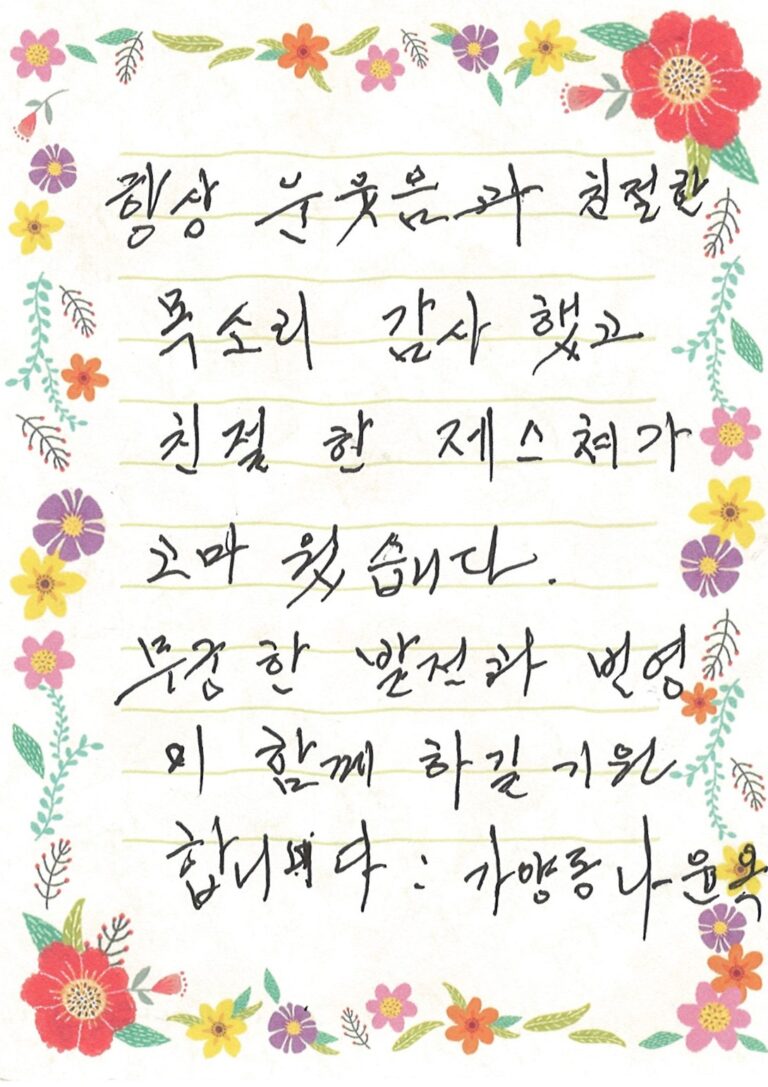 항상 눈웃음과 친절한
목소리 감사 했고
친절 한 제스쳐가
고마 웠습니다.
무궁한 발전과 번영
이 함께 하길 기원
합니다 : 가양동 나윤옥